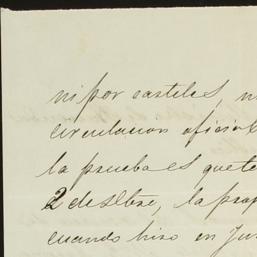 ni por carteles, n
circulacion oficial
la prueba es que te
2 de Sbre, la prop
cuando hizo en Ju